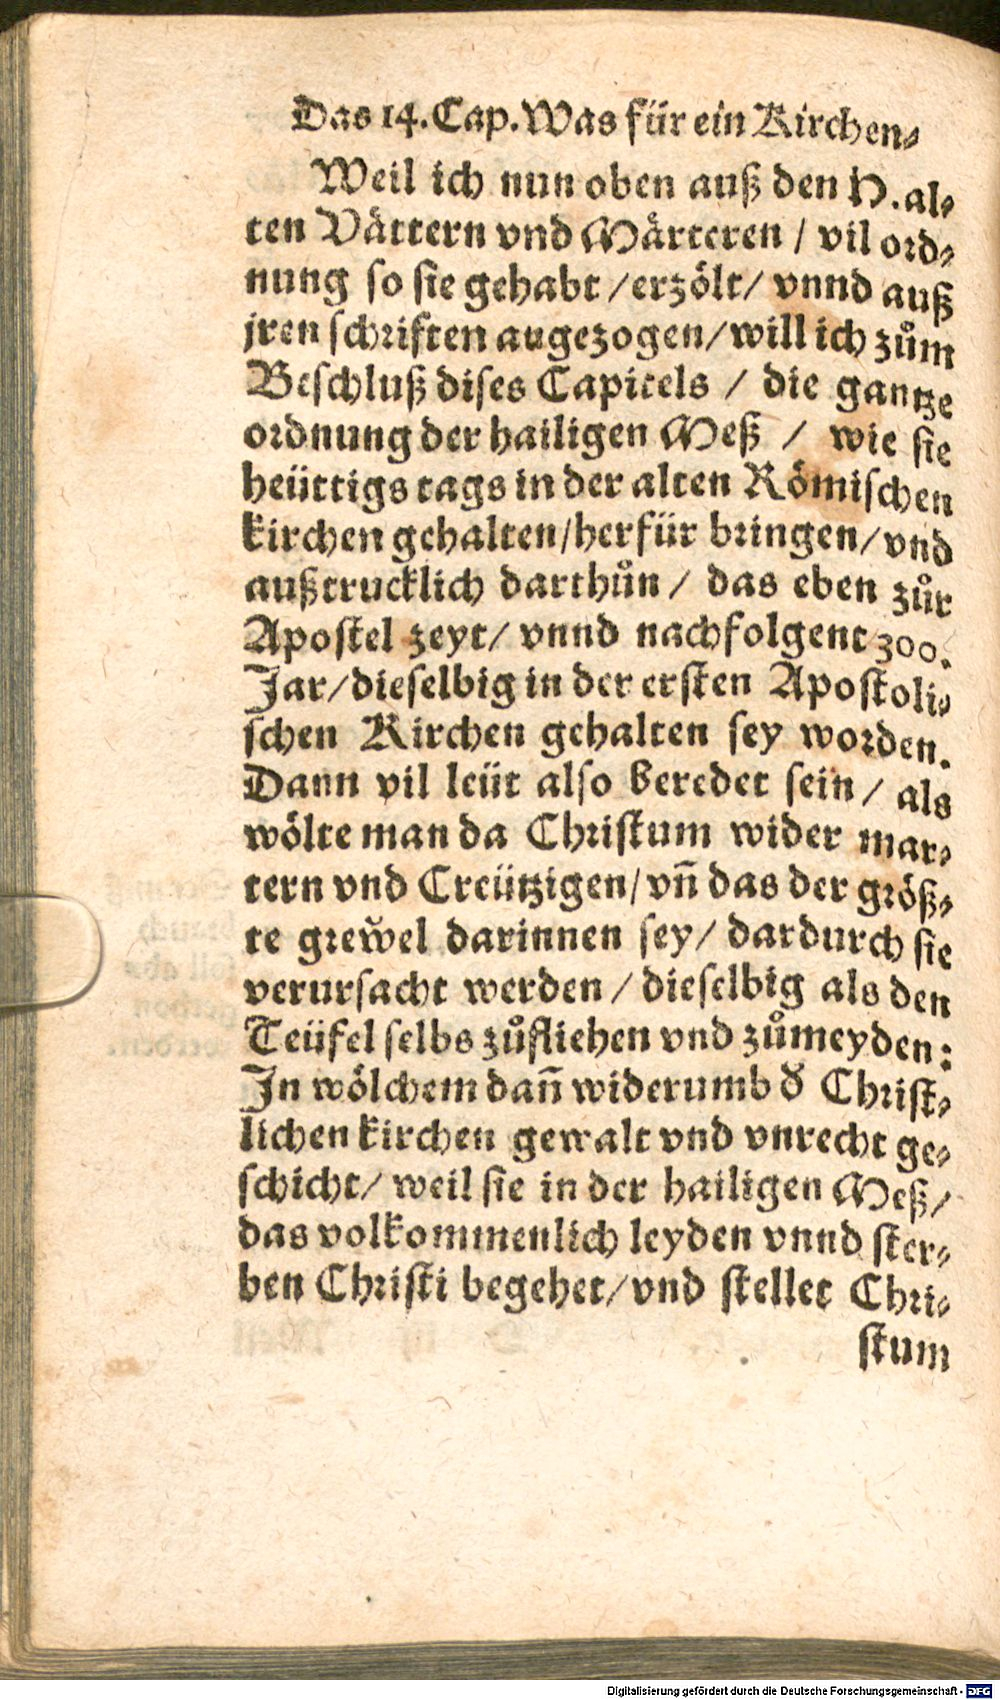 Das 14. Cap. Was für ein Kirchen⸗
Weil ich nun oben auß den H. al⸗
ten Vättern vnd Märteren / vil ord⸗
nung so sie gehabt / erzölt / vnnd auß
jren schriften angezogen / will ich zům
Beschluß dises Capitels / die gantze
ordnung der hailigen Meß / wie sie
heüttigs tags in der alten Römischen
kirchen gehalten / herfür bringen / vnd
außtrucklich darthůn / das eben zůr
Apostel zeyt / vnnd nachfolgent 300.
Jar / dieselbig in der ersten Apostoli⸗
schen Kirchen gehalten sey worden.
Dann vil leüt also beredet sein / als
wölte man da Christum wider mar⸗
tern vnd Creützigen / vñ das der größ⸗
te grew̆el darinnen sey / dardurch sie
verursacht werden / dieselbig als den
Teüfel selbs zůfliehen vnd zůmeyden:
In wölchem dañ widerumb d̕ Christ⸗
lichen kirchen gewalt vnd vnrecht ge⸗
schicht / weil sie in der hailigen Meß /
das volkommenlich leyden vnnd ster⸗
ben Christi begehet / vnd stellet Chri⸗
stum
Digitalisierung gefördert durch die Deutsche Forschungsgemeinschaft - DFG